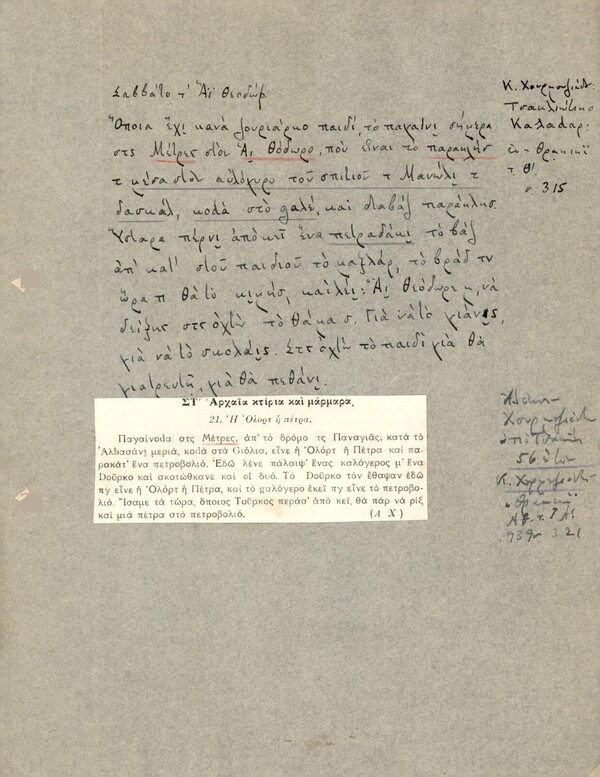 Σαββάτο τ' Ἁϊ Θεοδώρ
Ὅποια ἔχι κανά παιδί, τὸ παγαίνι σήμερα
στς Μέτρες στὸν Ἅϊ Θόδωρο, ποὺ εἶναι τὸ
τ μέσα στὸν αὐλόγυρο τοῦ σπιτιοῦ τ Μανώλι τ
δασκάλ, κοdὰ στὸ gαλέ, καὶ διαβάζ παράκλησ
Ὕστερα πέρνι ἀπὸ κεῖ ἕνα πετραδάκι τὸ βάζ
ἀπ' κατ' στοῦ παιδιοῦ τὸ μαξλάρ, τὸ βράδ τν
ὥρα π θὰ τὸ κιμήσ, καὶ λέι: Ἅϊ Θεόδωρε μ, νὰ
δείξης στς ὀχτὼ τὸ θάμα σ. Γιὰ νὰ τὸ γιάνς,
γιὰ νὰ τὸ σκολάις. Στς ὀχτὼ τὸ παιδὶ γιὰ θὰ
γιατρευτῆ, γιὰ θὰ πεθάνι.
Κ. Χουρμουζιάδ:
Τσακιλιώτικο
Καλαdάρ:
ἐν Θρακικὰ
τ. Θ'
σ 315
ΣΤ' Ἀρχαῖα κτίρια καὶ μάρμαρα.
21. Ἡ Ὀλορτ ἡ πέτρα.
Παγαίνοdα στς Μέτρες, ἀπ' τὸ δρόμο τς Παναγιᾶς, κατὰ τὸ
Ἀλbασάνj μεριά, κοdὰ στὰ Gιόλια, εἶνε ἡ Ὀλὸρτ ἡ Πέτρα καὶ πα-
ρακάτ' ἕνα πετροβολιό. Ἐδῶ λένε πάλαιψ' ἕνας καλόγερος μ' ἕνα
Dοῦρκο καὶ σκοτώθκανε καὶ οἱ δυό. Τὸ Dοῦρκο τὸν ἔθαψαν ἐδῶ
πγ εἶνε ἡ Ὀλὸρτ ἡ Πέτρα, καὶ τὸ καλογέρο ἐκεῖ πγ εἶνε τὸ πετροβο-
λιό. Ἴσαμε τὰ τώρα, ὅποιος Τοῦρκος περάσ' ἀπὸ κεῖ, θὰ πάρ νὰ ρίξ
καὶ μιὰ πέτρα στὸ πετροβολιό. (Α Χ)
Χουρμουζιάδη
56 ἐτῶν
Κ. Χουρμουζιάδη
Θρακικὰ
939 321